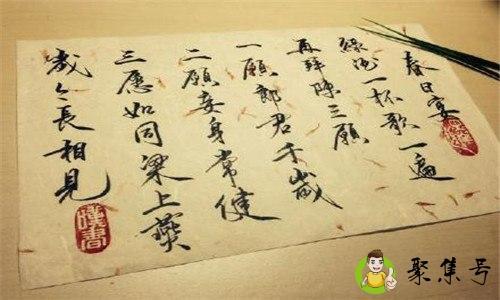 春日宴
綠酒一杯歌一遍
再拜陳三願
一願郎君千歲
二願妾身常健
三愿如同梁上燕
歲々長相見
聚集号